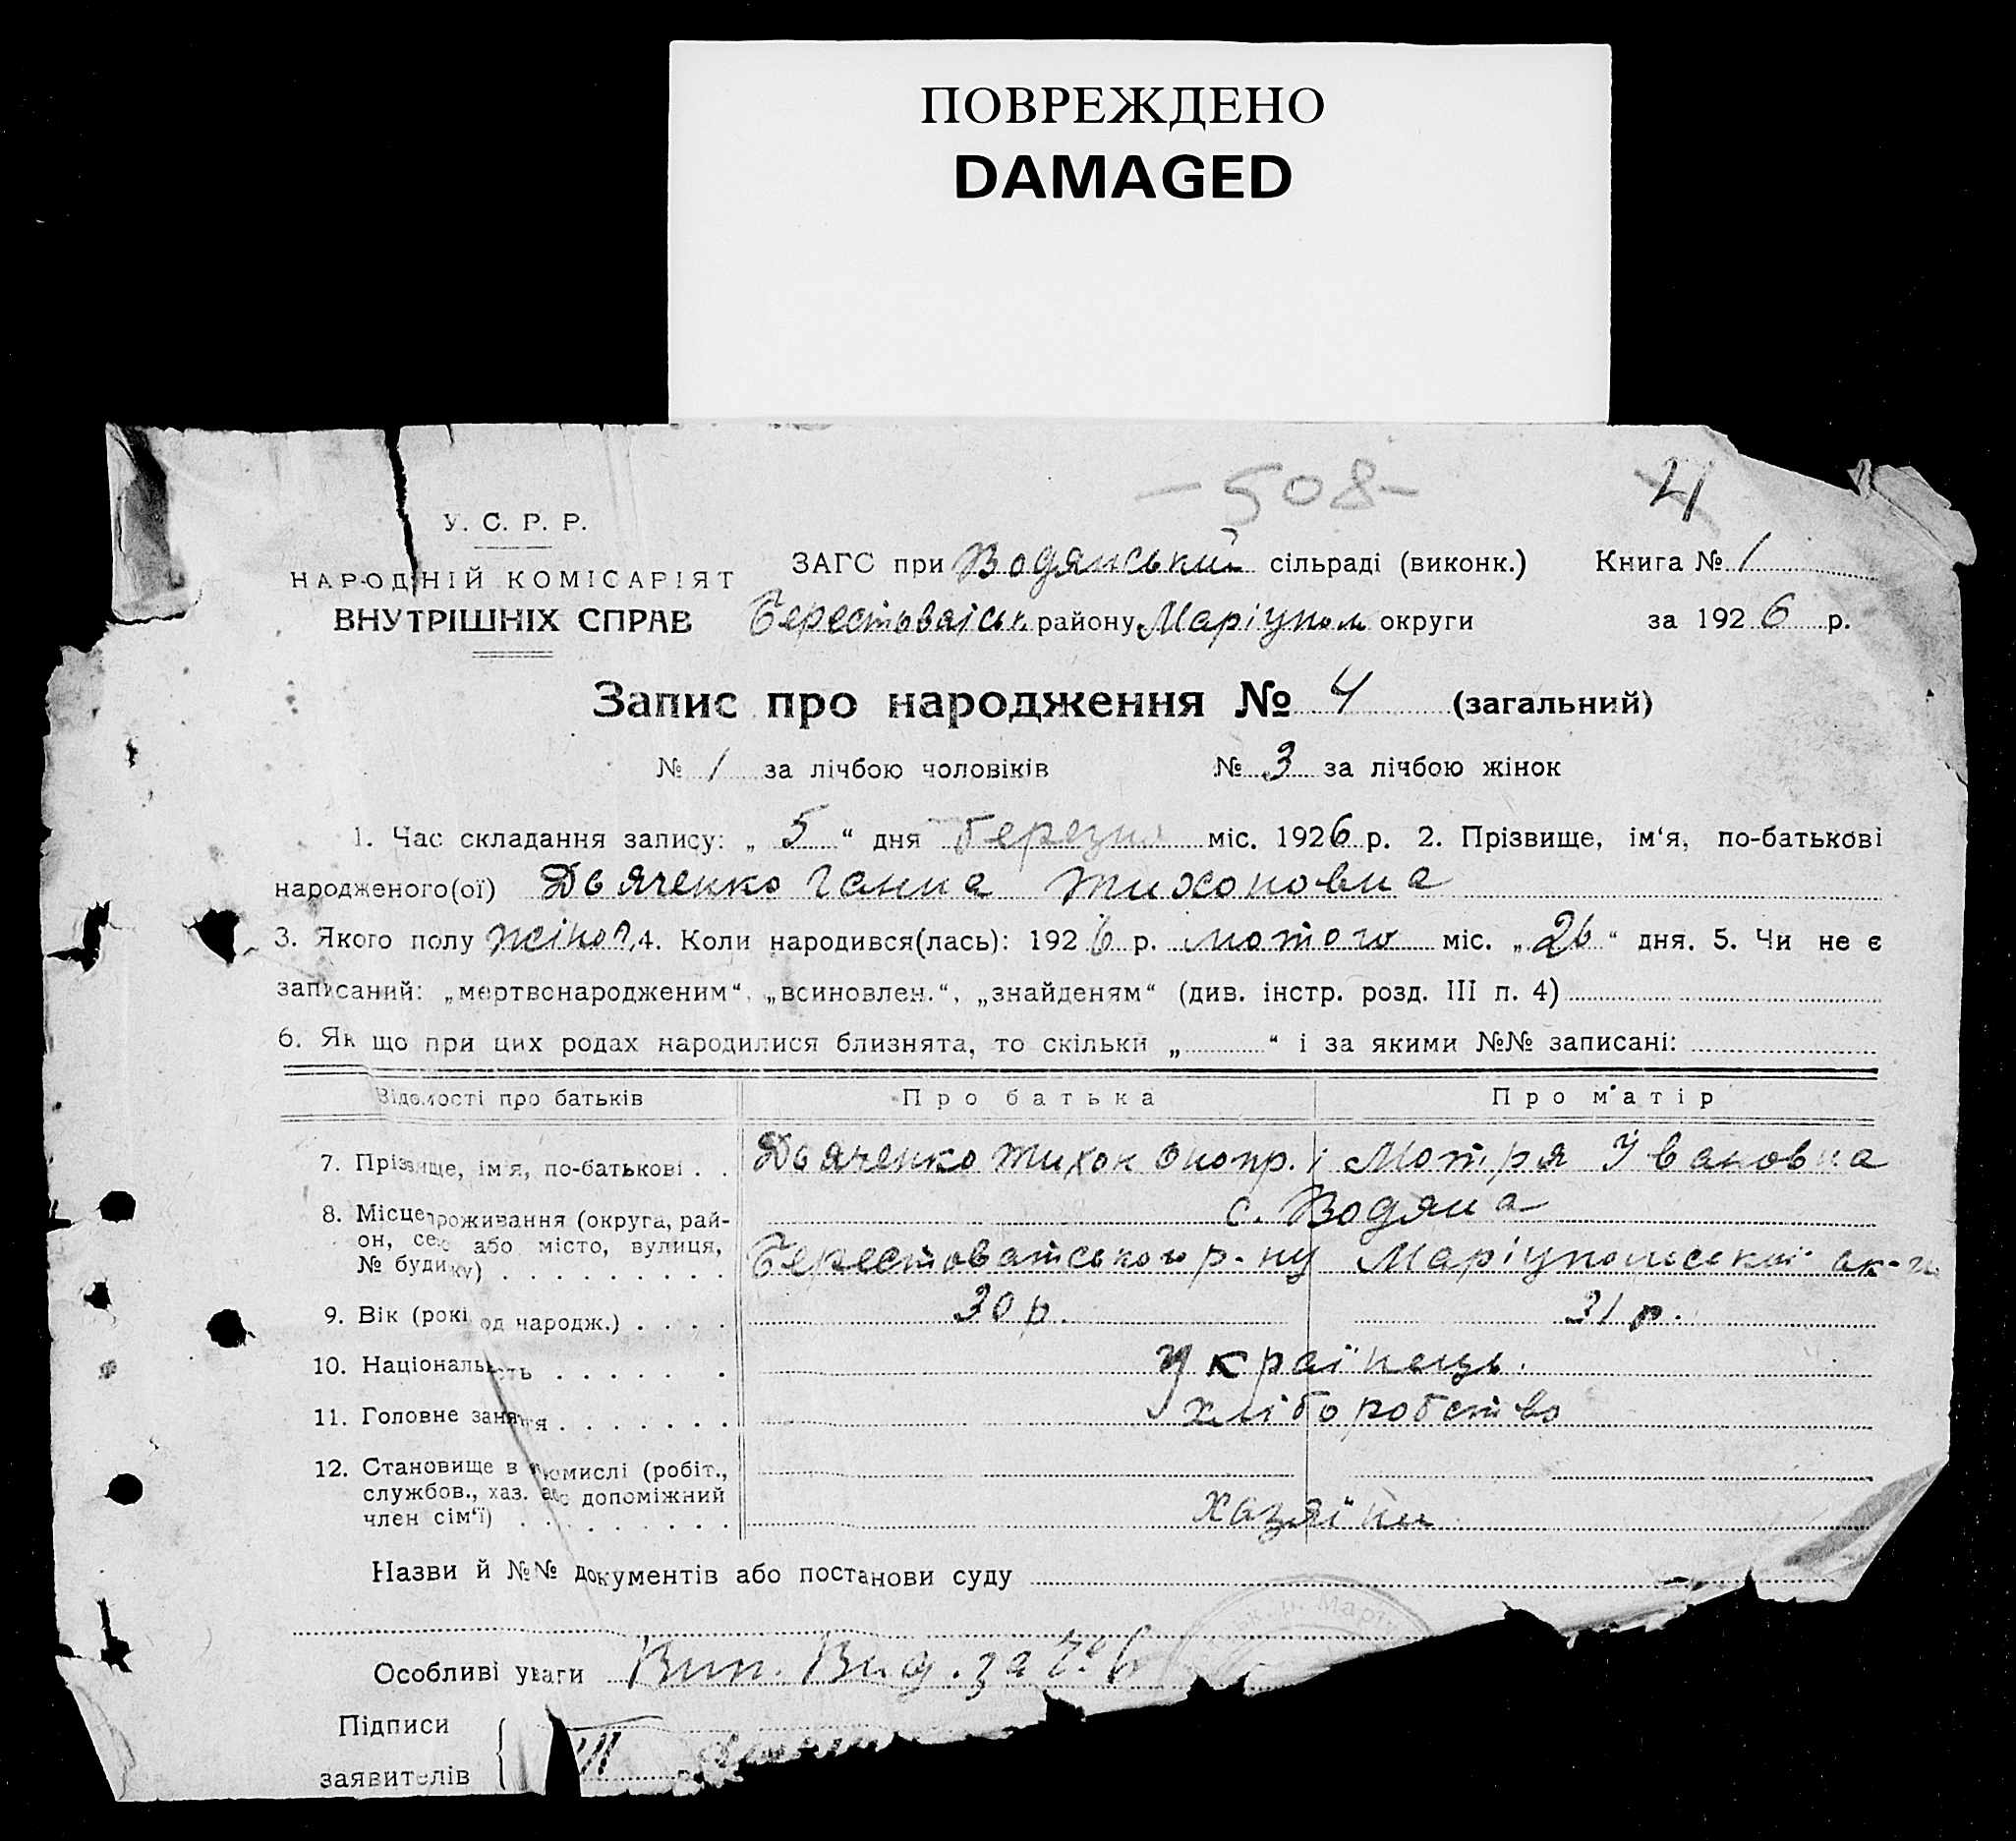 ПОВРЕЖДЕНО
DAMAGED
-508-
4
У. С. Р. Р.
НАРОДНІЙ КОМІСАРІЯТ
ВНУТРІШНІХ СПРАВ
ЗАГС при Водянський сільраді (виконк.) Книга № 1
району Маріупол округи за 1926 р.
Запис про народження № 4 (загальний)
№ 1 за лічбою чоловіків № 3 за лічбою жінок
1. Час складання запису: „ 5 “ дня березня міс. 1926 р. 2. Прізвище, ім‘я, по-батькові
народженого(ої) Дьяченко Ганна Тихоновна
3. Якого полу жіноч. 4. Коли народився(лась): 1926 р. лютого міс. „ 26 “ дня. 5. Чи не є
записаний: „мертвонародженим“, „всиновлен.“, „знайденям“ (див. інстр. розд. III п. 4)
6. Як що при цих родах народилися близнята, то скільки „ “ і за якими №№ записані:
Відомості про батьків Про батька Про матір
7. Прізвище, ім‘я, по-батькові . . Дьяченко Тихон Онопр. Мотря Івановна
8. Місце проживання (округа, рай-
он, село або місто, вулиця,
№ будинку) . . . . . . . . . .
с. Водяна
Берестоватського р-ну Маріупольської ок-и
9. Вік (років од народж.) . . . . 30 р. 31 р.
10. Національність . . . . . . . Українець.
11. Головне заняття . . . . . . . хліборобство
12. Становище в промислі (робіт.,
службов., хаз. або допоміжний
член сім‘ї) . . . . . . . . . хазяїни
Назви й №№ документів або постанови суду
Особливі уваги Вип. Вид. за
Підписи
заявителів